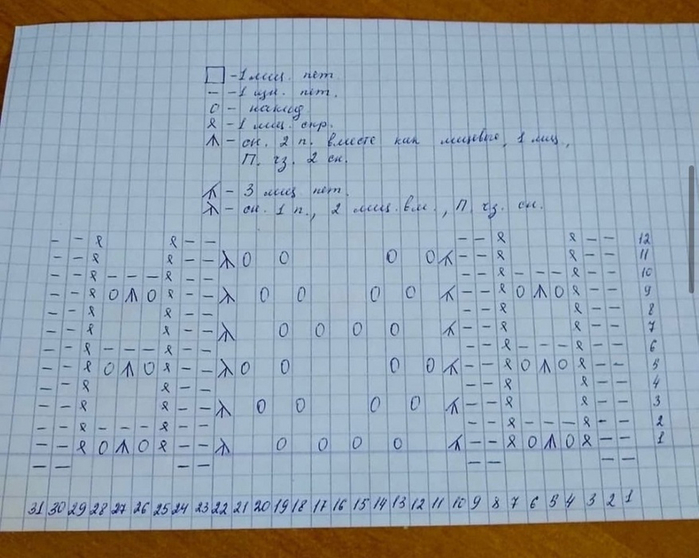 □ - 1 лиц. пет.
– - 1 изн. пет.
O - накид
ጸ - 1 лиц. скр.
⩚ - сн. 2 п. вместе как лицевые, 1 лиц.,
П. чз. 2 сн.
- 3 лиц пет.
- сн. 1 п., 2 лиц. вм., П. чз. сн.
12
11
10
9
8
7
6
5
4
3
2
1
31 30 29 28 27 26 25 24 23 22 21 20 19 18 17 16 15 14 13 12 11 10 9 8 7 6 5 4 3 2 1